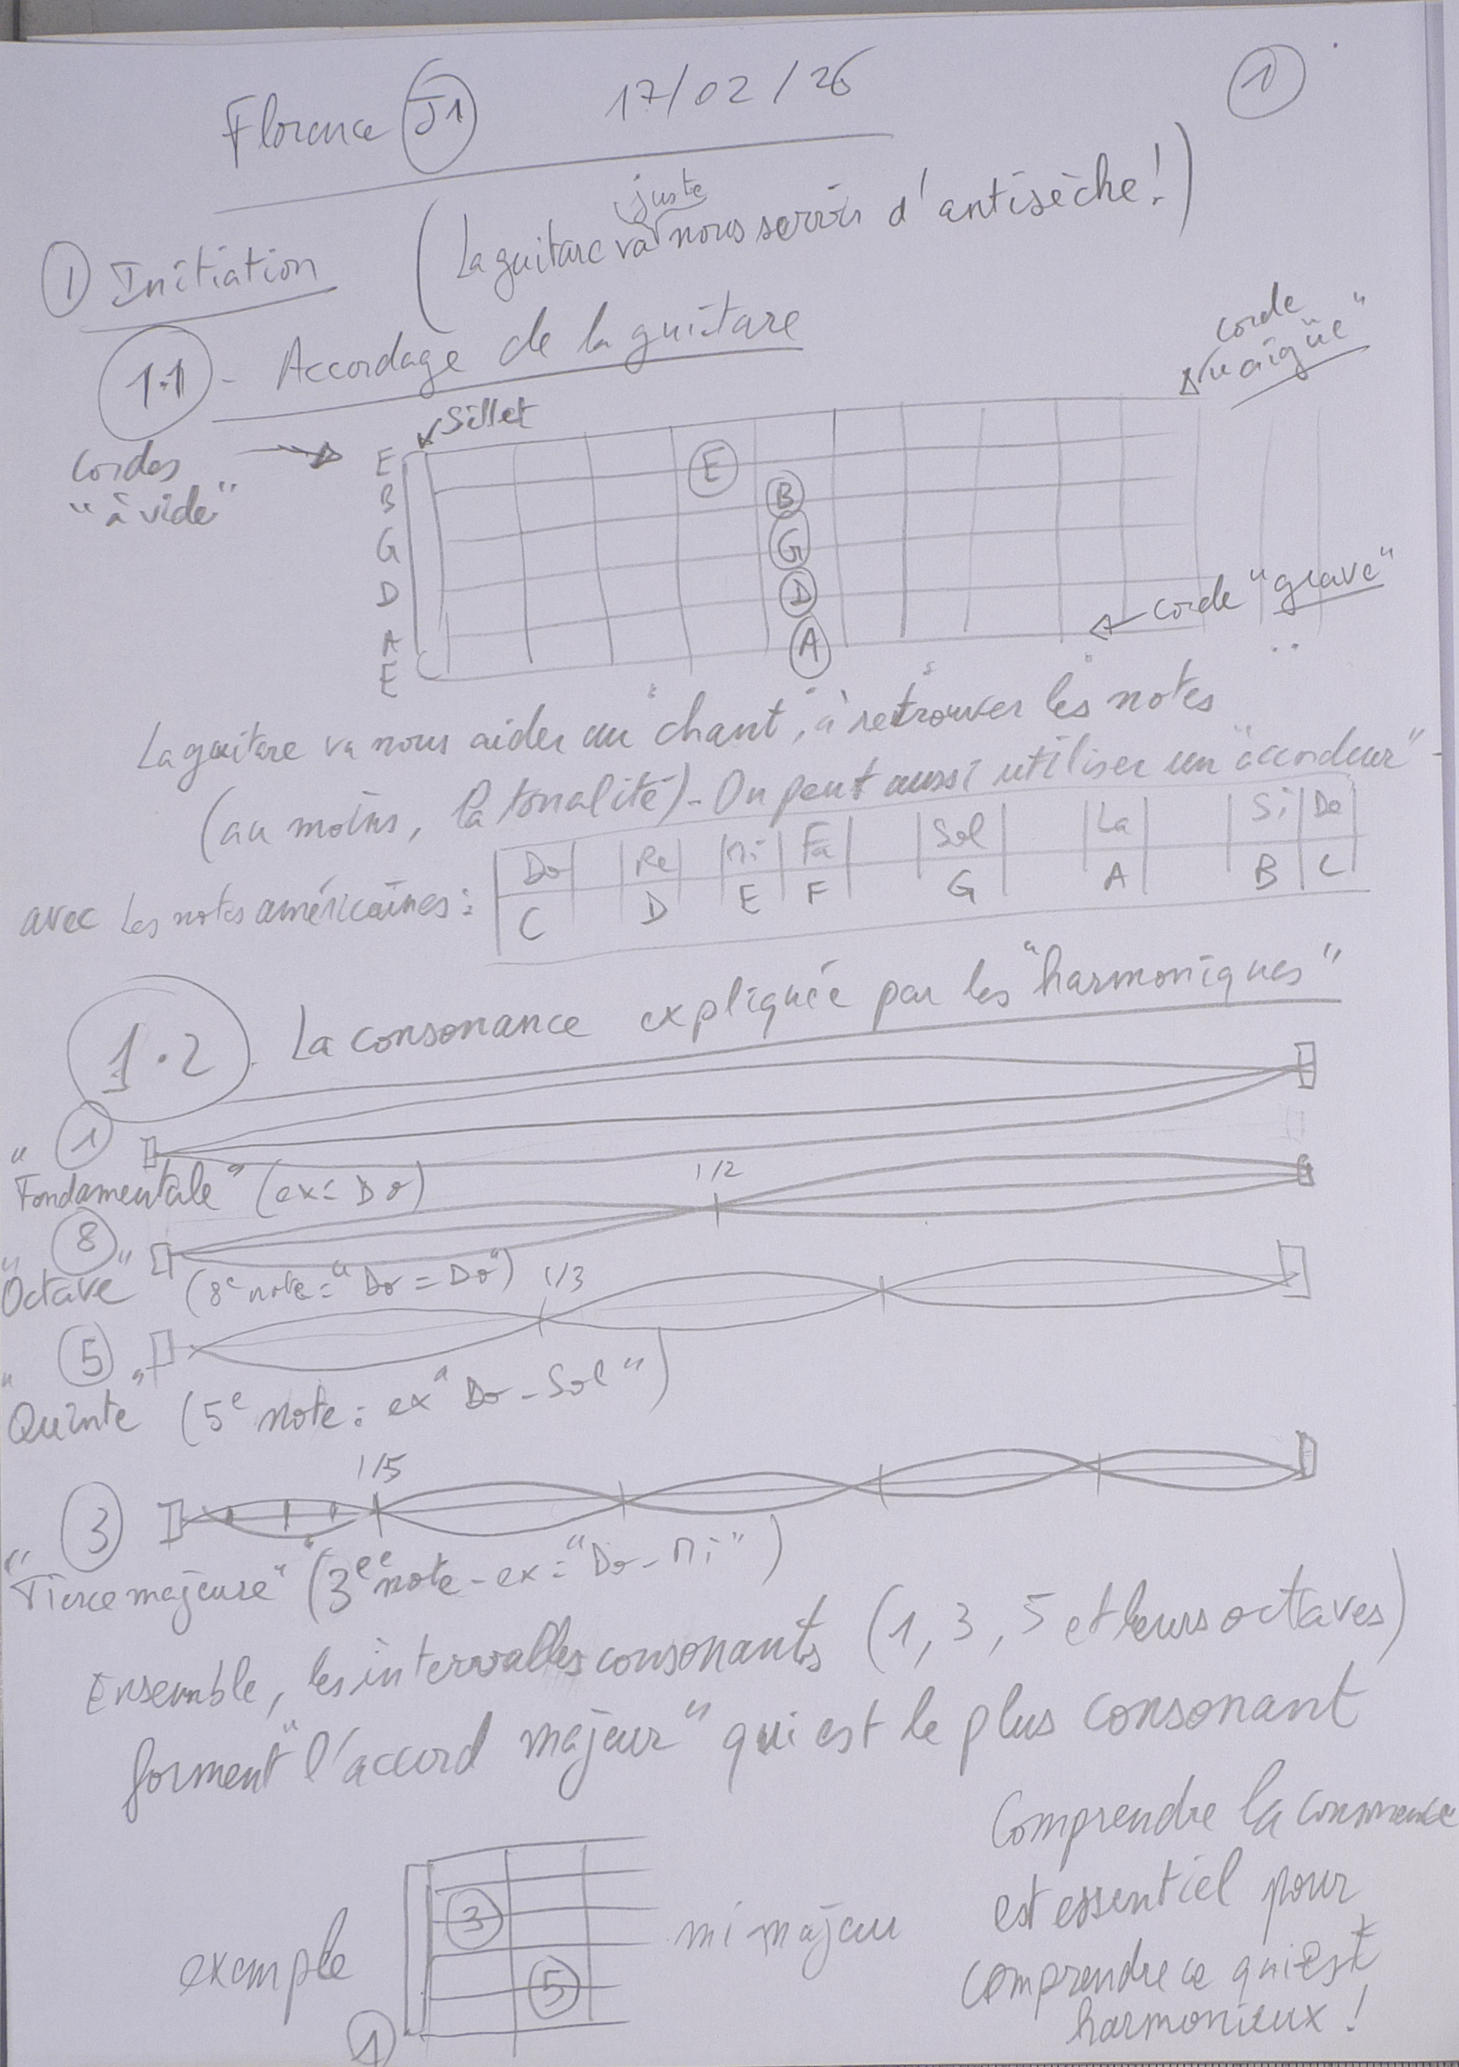 Florence J1 17/02/26
1
1 Initiation (La guitare va juste nous servir d'antisèche!)
1.1 - Accordage de la guitare
corde "aigüe"
Cordes "à vide"
Sillet
E
B
G
D
A
E
E
B
G
D
A
corde "grave"
La guitare va nous aider au "chant", à retrouver les notes
(au moins, la tonalité) - On peut aussi utiliser un "accordeur" -
avec les notes américaines :
Do Re Mi Fa Sol La Si Do
C D E F G A B C
1.2 . La consonance expliquée par les "harmoniques"
1
"Fondamentale" (ex: Do)
1/2
8
"Octave" (8e note = "Do = Do")
1/3
5
"Quinte" (5e note : ex "Do - Sol")
1/5
3
"Tierce majeure" (3ee note - ex = "Do - Mi")
Ensemble, les intervalles consonants (1, 3, 5 et leurs octaves)
forment "l'accord majeur" qui est le plus consonant
example
3
5
1
mi majeur
Comprendre la consonance
est essentiel pour
comprendre ce qui est
harmonieux !